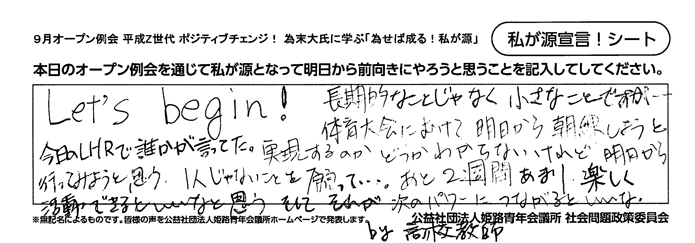 9月オープン例会 平成Z世代 ポジティブチェンジ! 為末大氏に学ぶ「為せば成る!私が源」
私が源宣言!シート
本日のオープン例会を通じて私が源となって明日から前向きにやろうと思うことを記入してしてください。
Let's begin!
長期的なことじゃなく 小さなことですが…
体育大会にむけて 明日から 朝練しようと
今日のLHRで誰かが言ってた。実現するのか どうか わからないけれど 明日から
行ってみようと思う。1人じゃないことを願って…。あと2週間あまり 楽しく
活動できるといいなと思う そして それが 次のパワーに つながるといいな。
by 高校教師
※無記名によるものです。皆様の声を公益社団法人姫路青年会議所ホームページで発表します。
公益社団法人姫路青年会議所 社会問題政策委員会